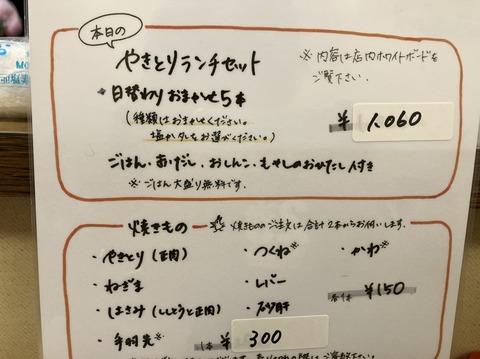 本日の
やきとりランチセット
※内容は店内ホワイトボードを
ご覧下さい.
・日替わりおまかせ5本
(種類はおまかせください。
塩かタレをお選びください。)
¥1,060
ごはん、あげだし、おしんこ、もやしのおかだし付き
※ごはん大盛り無料です。
焼きもの
焼きもののご注文は合計2本からお伺いします。
・やきとり(正肉)
・つくね※
・かわ※
・ねぎま
・レバー
各1本 ¥150
・はさみ(ししとうと正肉)
・砂肝
・手羽先※
1本 ¥300